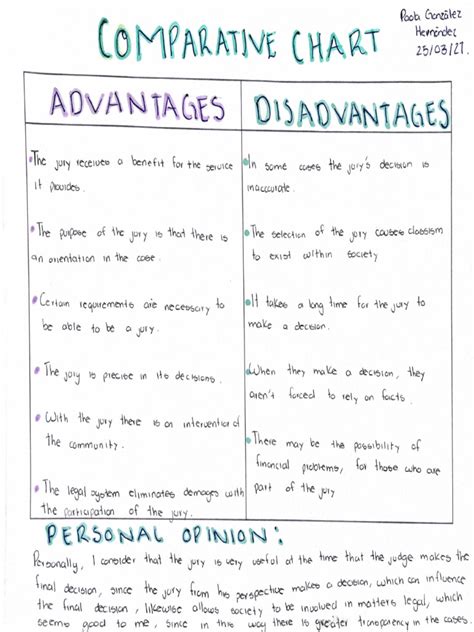 Paola González
Hernández
25/03/21.
COMPARATIVE CHART
ADVANTAGES
The jury receives a benefit for the service
it provides.
The purpose of the jury is that there is
an orientation in the case.
Certain requirements are necessary to
be able to be a jury.
The jury is precise in its decisions.
With the jury there is an intervention of
the community.
The legal system eliminates demages with
the participation of the jury.
DISADVANTAGES
In some cases the jury's decision is
inaccurate.
The selection of the jury causes classism
to exist within society
It takes a long time for the jury to
make a decision.
When they make a decision, they
aren't forced to rely on facts.
There may be the possibility of
financial problems, for those who are
part of the jury
PERSONAL OPINION:
Personally, I consider that the jury is very useful at the time that the judge makes the
final decision, since the jury from his perspective makes a decision, which can influence
the final decision, likewise allows society to be involved in matters legal, which
seems good to me, since in this way there is greater transparency in the cases